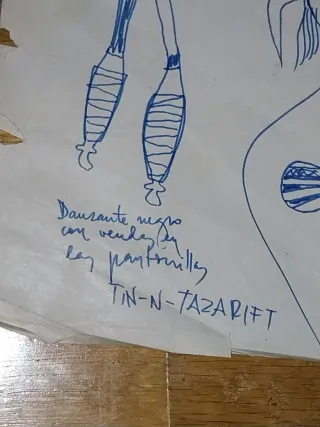 Danzante negro
con vendas en
las pantorrillas
TIN-N-TAZARIFT